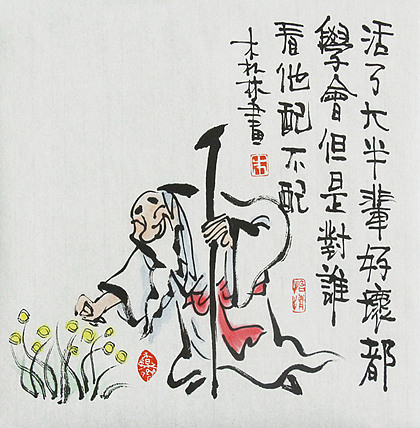 活了大半輩好壞都
學會但是對誰
看他配不配
林畫